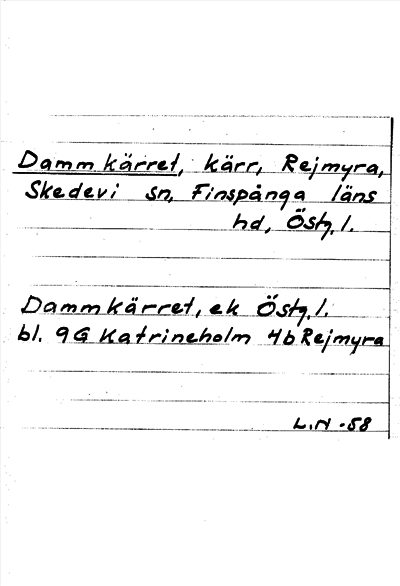 Dammkärret, kärr, Rejmyra,
Skedevi sn, Finspånga läns
hd, Östg. l.
Dammkärret, ek Östg. l.
bl. 9G Katrineholm 4b Rejmyra
L.N -58